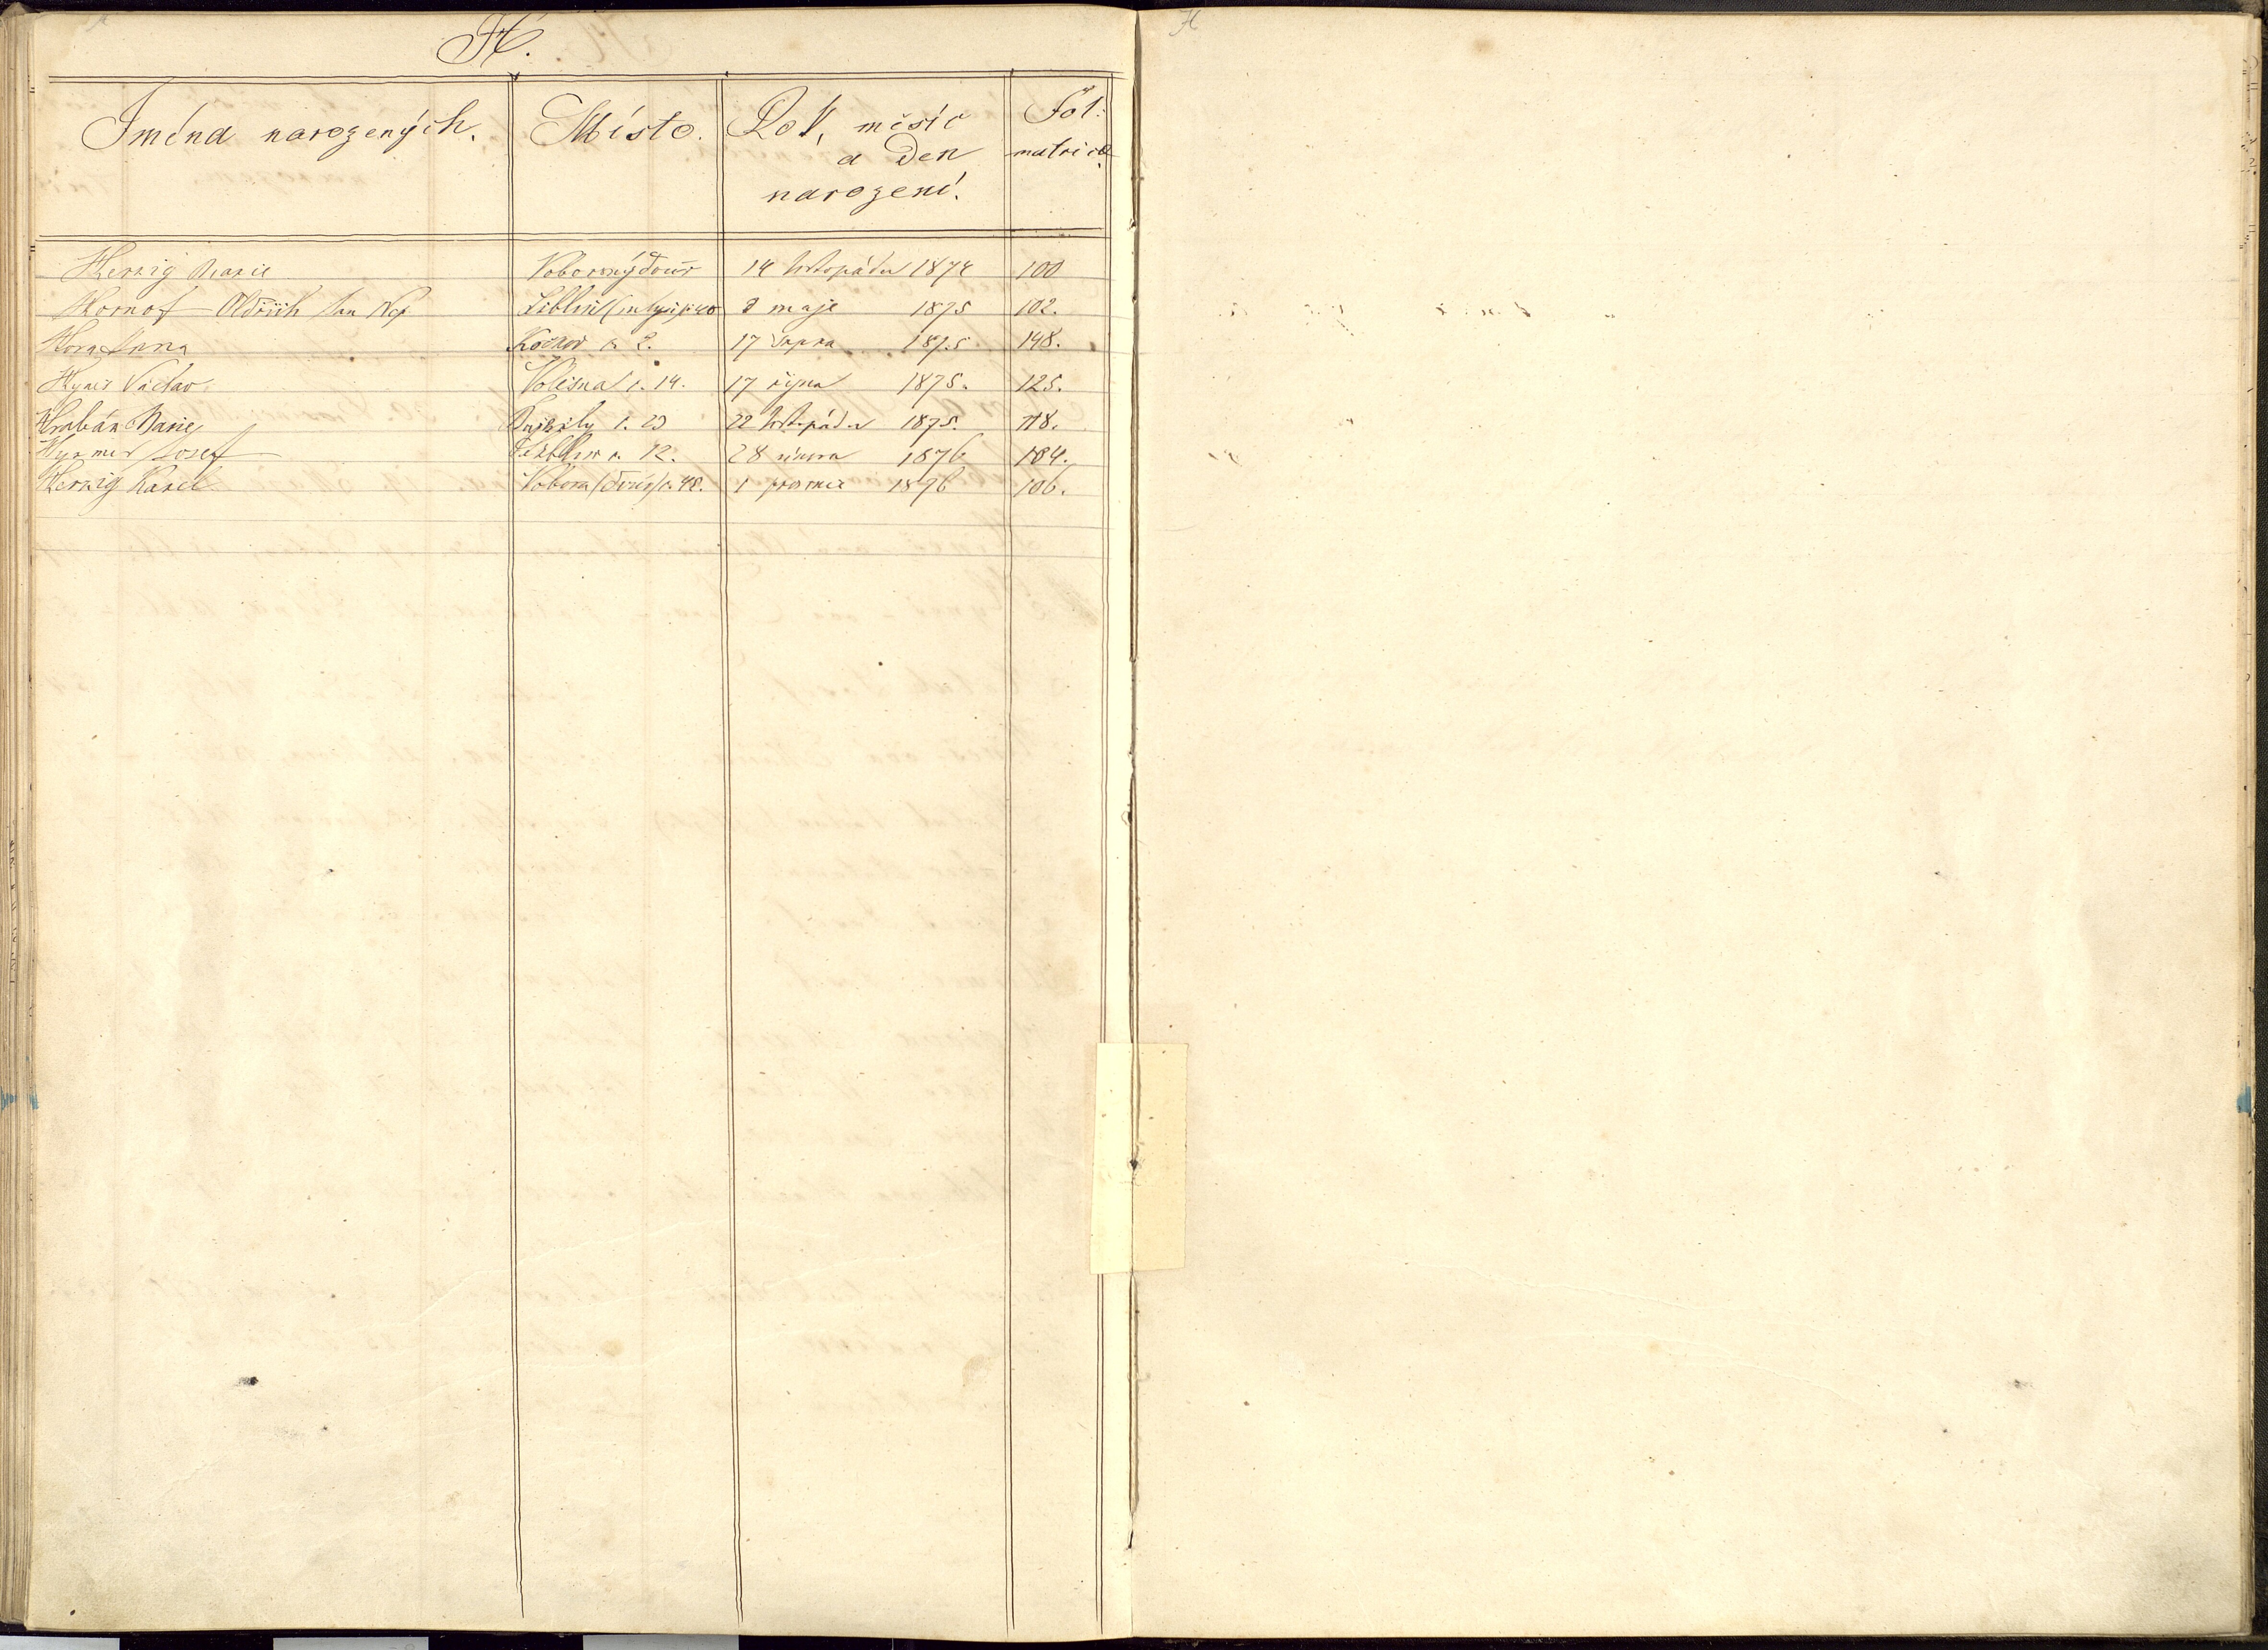 H.
Jména narozených. Místo. Rok, měsíc a den narození. Fol: matrice
Herzig Marie Voborský dvůr 14 listopadu 1874 100
Hornof Oldřich Jan Nep Liblín (mlýn) č. 40 8 maje 1875 102.
Hora Anna Kochov č. 2. 17 srpna 1875 148.
Hynes Václav Volešna č. 14. 17 října 1875. 125.
Hrabán Marie č. 23 22 listopadu 1875. 118.
Josef Liblín č. 12. 28 února 1876 104.
Herzig Karel Vobora (dvůr) č. 48. 1 prosince 1876 106.
H